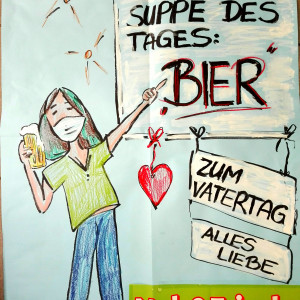 SUPPE DES
TAGES:
"BIER"
ZUM
VATERTAG
ALLES
LIEBE